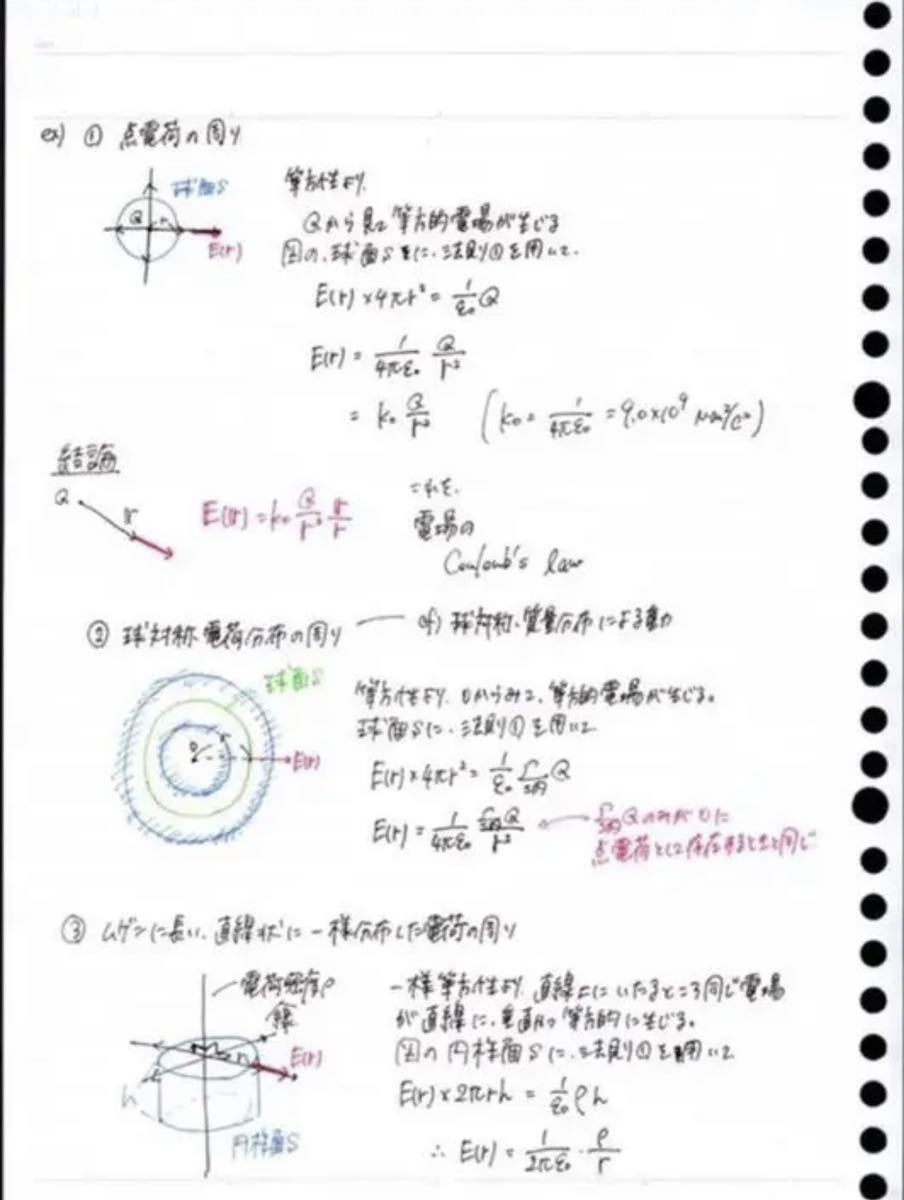 ex) ① 点電荷の周り
球面S
Q
r
E(r)
等方性より、
Qから見て等方的電場が生じる
図の、球面Sに、法則①を用いて、
E(r)×4πr² = 1/ε₀ Q
E(r) = 1/4πε₀ Q/r²
= k₀ Q/r² (k₀ = 1/4πε₀ = 9.0×10⁹ Nm²/C²)
結論
Q
r
E(r) = k₀ Q/r² r/r
これを、
電場の
Coulomb's law
② 球対称電荷分布の周り
cf) 球対称、質量分布による重力
球面S
O
r
E(r)
等方性より、Oからみて、等方的電場が生じる。
球面Sに、法則①を用いて
E(r)×4πr² = 1/ε₀ Σ Q
E(r) = 1/4πε₀ Q/r²
Qのみが Oに
点電荷として存在するときと同じ
③ ムゲンに長い、直線状に一様分布した電荷の周り
電荷密度ρ
線
r
E(r)
h
円柱面S
一様等方性より、直線上にいたるところ同じ電場
が直線に、垂直かつ等方的に生じる。
図の円柱面Sに、法則①を用いて
E(r)×2πrh = 1/ε₀ ρh
∴ E(r) = 1/2πε₀ · ρ/r